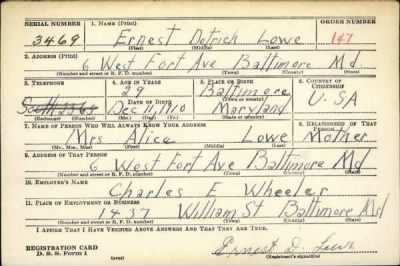 SERIAL NUMBER 1. NAME (Print) ORDER NUMBER
3469 Ernest Detrich Lowe 147
(First) (Middle) (Last)
2. ADDRESS (Print)
6 West Fort Ave Baltimore Md
(Number and street or R. F. D. number) (Town) (County) (State)
3. TELEPHONE 4. AGE IN YEARS 5. PLACE OF BIRTH 6. COUNTRY OF CITIZENSHIP
29 Baltimore
DATE OF BIRTH (Town or county) U.SA
South Dec 11, 1910 Maryland
(Exchange) (Number) (Mo.) (Day) (Yr.) (State or country)
7. NAME OF PERSON WHO WILL ALWAYS KNOW YOUR ADDRESS 8. RELATIONSHIP OF THAT PERSON
Mrs Alice Lowe Mother
(Mr., Mrs., Miss) (First) (Middle) (Last)
9. ADDRESS OF THAT PERSON
6 West Fort Ave Baltimore Md
(Number and street or R. F. D. number) (Town) (County) (State)
10. EMPLOYER'S NAME
Charles E Wheeler
11. PLACE OF EMPLOYMENT OR BUSINESS
1437 William St Baltimore Md
(Number and street or R. F. D. number) (Town) (County) (State)
I AFFIRM THAT I HAVE VERIFIED ABOVE ANSWERS AND THAT THEY ARE TRUE.
REGISTRATION CARD
D. S. S. Form 1 Ernest D. Lowe
(Registrant's signature)